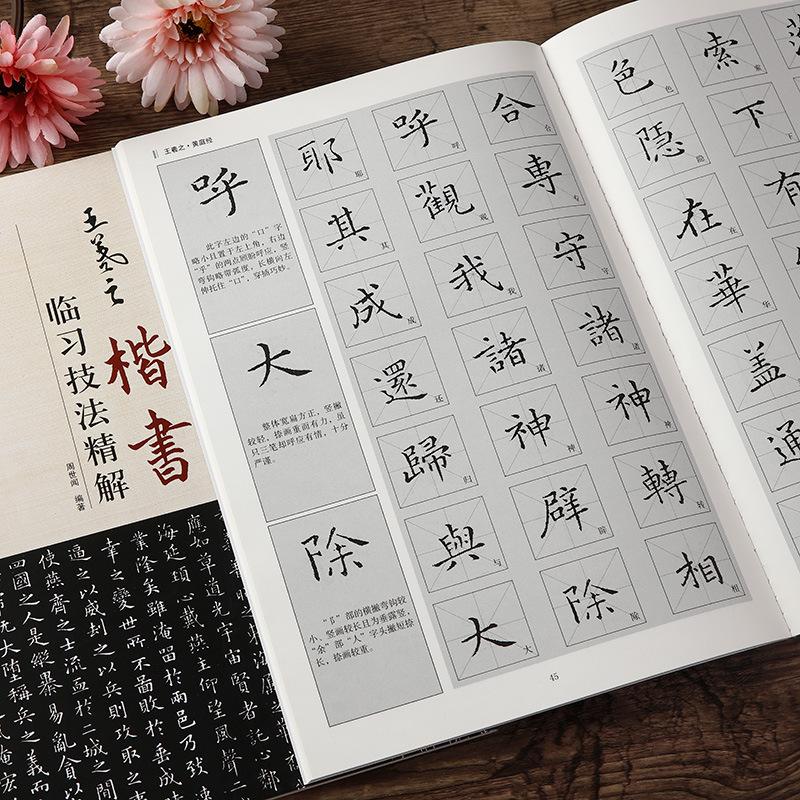 王羲之
楷書
临习技法精解
周世闻 编著
應如草道光宇宙賢者託心鄰
海延頸心戴燕主仰望風聲二
業隆矣雖淹留於兩邑乃致速
幸之變世所不圖敗於垂成時
逼之以威劫之以兵則攻取之事
使燕齊之士流血於二城之間
四國之人是縱暴易亂貪以成
无大墮稱兵之義而
王羲之·黄庭经
呼
此字左边的“口”字
略小且置于左上角，右边
“乎”的两点顾盼呼应，竖
弯钩略带弧度，长横向左
伸托住“口”，穿插巧妙。
大
整体宽扁方正，竖撇
较轻，捺画重而有力，虽
只三笔却呼应有情，十分
严谨。
除
“阝”部的横撇弯钩较
小，竖画较长且为垂露竖，
“余”部“人”字头撇短捺
长，捺画较重。
合 合
專 专
守 守
諸 诸
神 神
轉 转
相 相
呼 呼
觀 观
我 我
諸 诸
神 神
辟 辟
除 除
耶 耶
其 其
成 成
還 还
歸 归
與 与
大 大
45
索 索
下 下
有
色 色
隱 隐
在 在
華 华
盖 盖
通 通